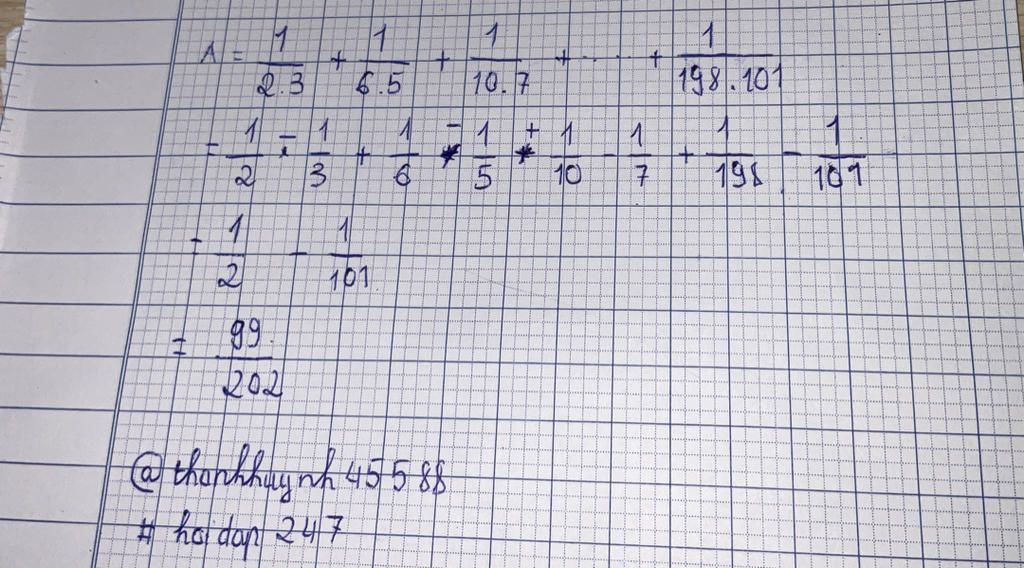 A = 1/2.3 + 1/6.5 + 1/10.7 + ..... + 1/198.101
= 1/2 - 1/3 + 1/6 - 1/5 + 1/10 - 1/7 + 1/198 - 1/101
= 1/2 - 1/101
= 99/202
@thanhhuynh45588
# hoidap 247